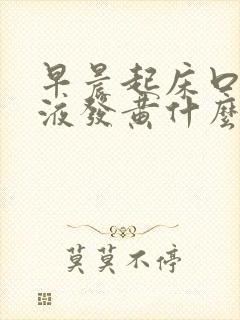 早晨起床口
液發黄什麼
莫莫不停